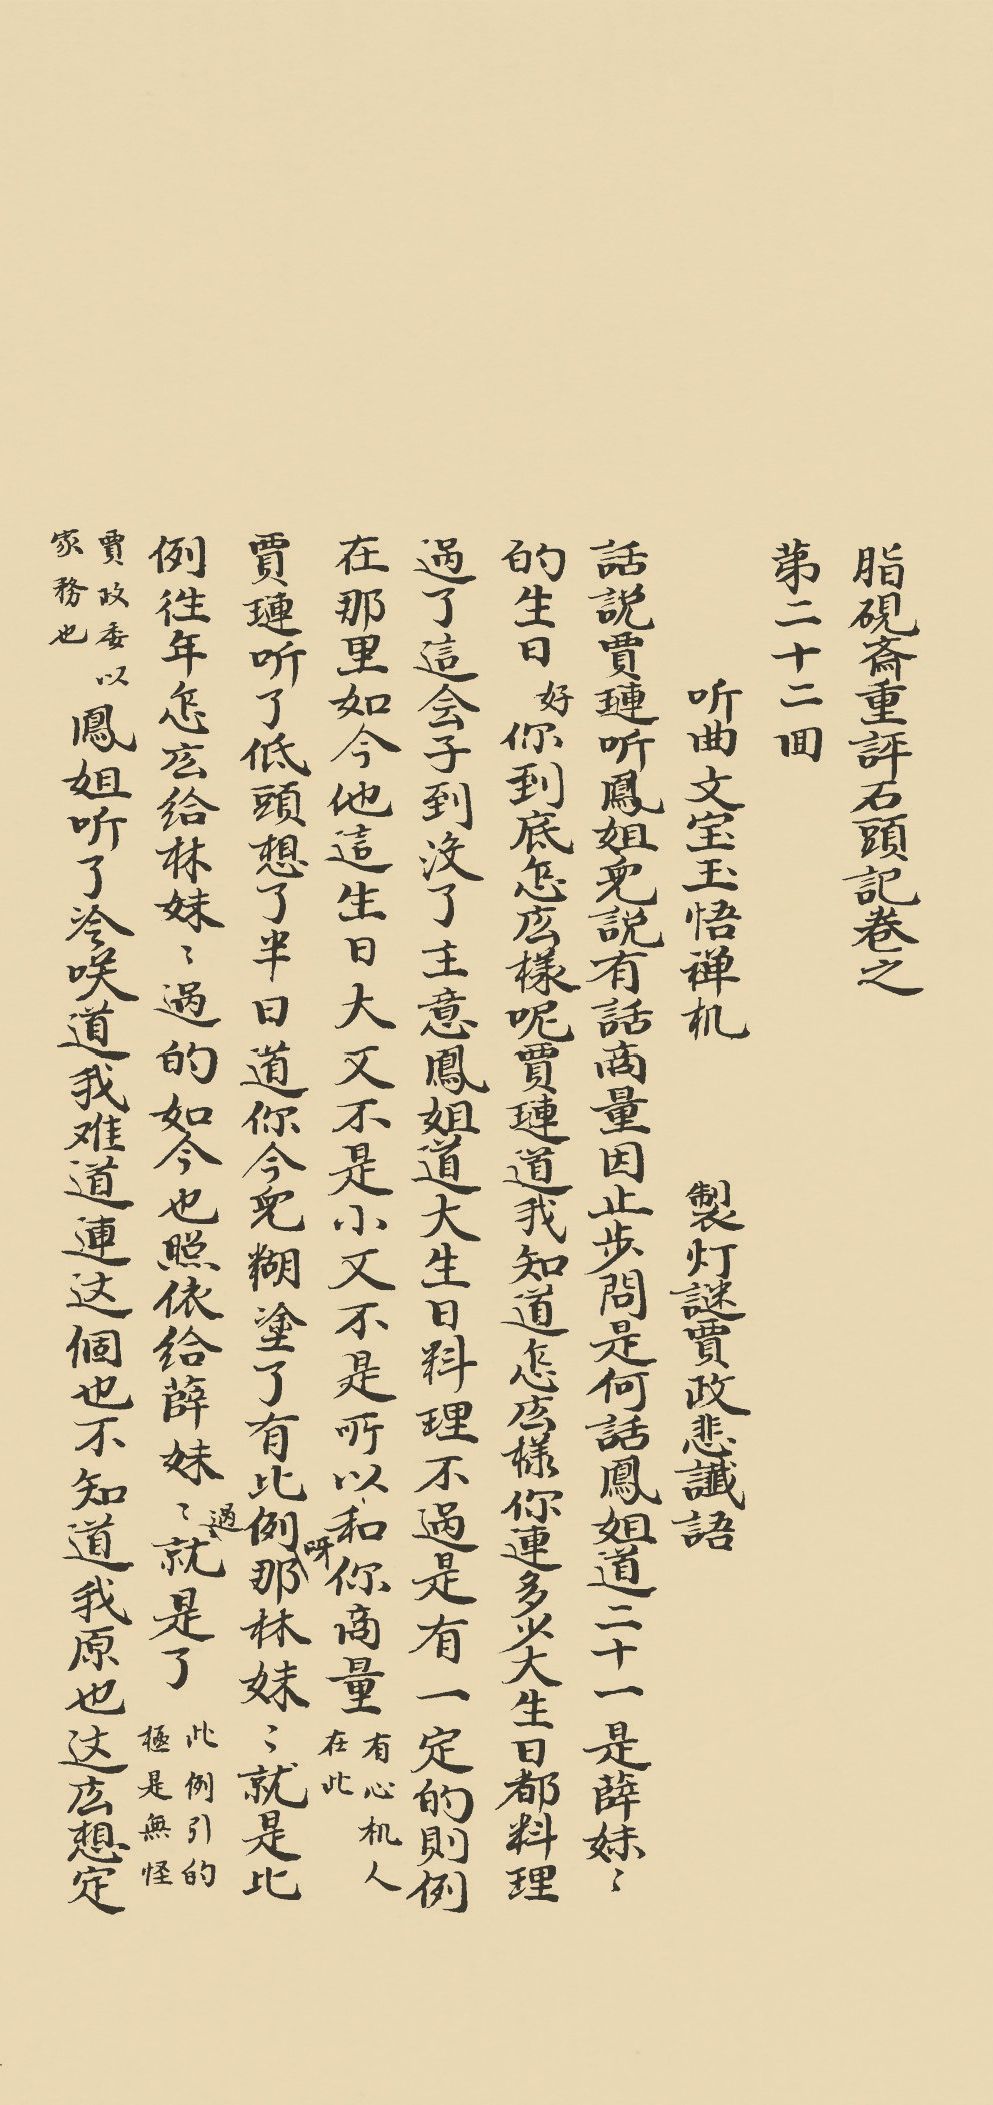 脂硯斋重評石頭記卷之
第二十二囬
听曲文宝玉悟禅机　製灯謎賈政悲讖語
話説賈璉听鳳姐兒説有話商量因止步問是何話鳳姐道二十一是薛妹〻
的生日好你到底怎庅樣呢賈璉道我知道怎庅様你連多少大生日都料理
過了這会子到没了主意鳳姐道大生日料理不過是有一定的則例
在那里如今他這生日大又不是小又不是所以和你商量有心机人在此
賈璉听了低頭想了半日道你今兒糊塗了有比例那呀林妹〻就是比
例徃年怎庅給林妹〻過的如今也照依給薛妹〻過就是了此例引的極是無怪
賈政委以家務也鳳姐听了冷咲道我难道連这個也不知道我原也这庅想定